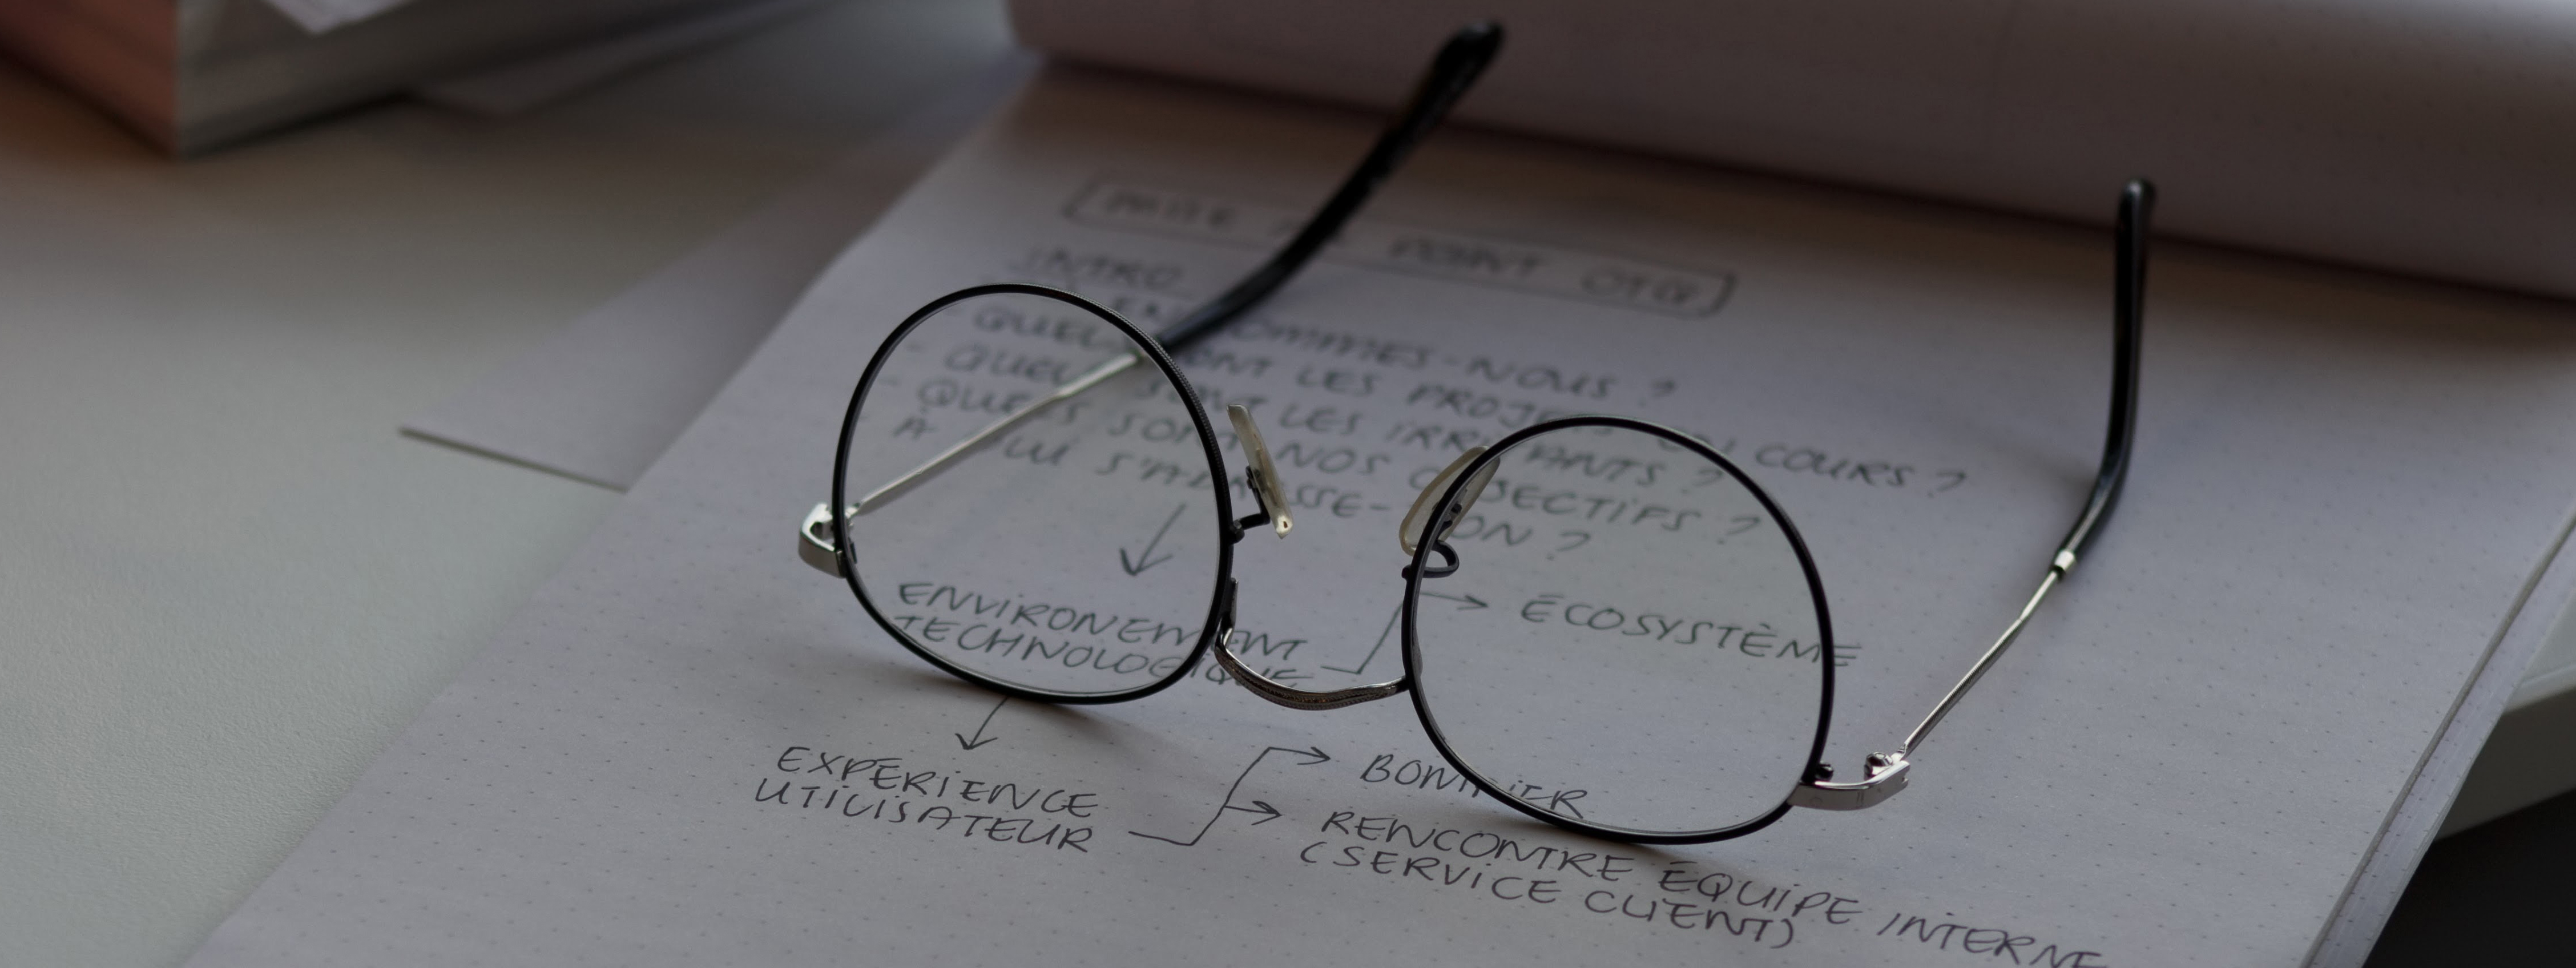 MISE AU POINT OTG
INTRO
- OÙ EN SOMMES-NOUS ?
- QUELS SONT LES PROJETS EN COURS ?
- QUELS SONT LES IRRITANTS ?
- QUELS SONT NOS OBJECTIFS ?
- À QUI S'ADRESSE-T-ON ?
ENVIRONEMENT
TECHNOLOGIQUE
ÉCOSYSTÈME
EXPÉRIENCE
UTILISATEUR
BONIFIER
RENCONTRE ÉQUIPE INTERNE
(SERVICE CLIENT)